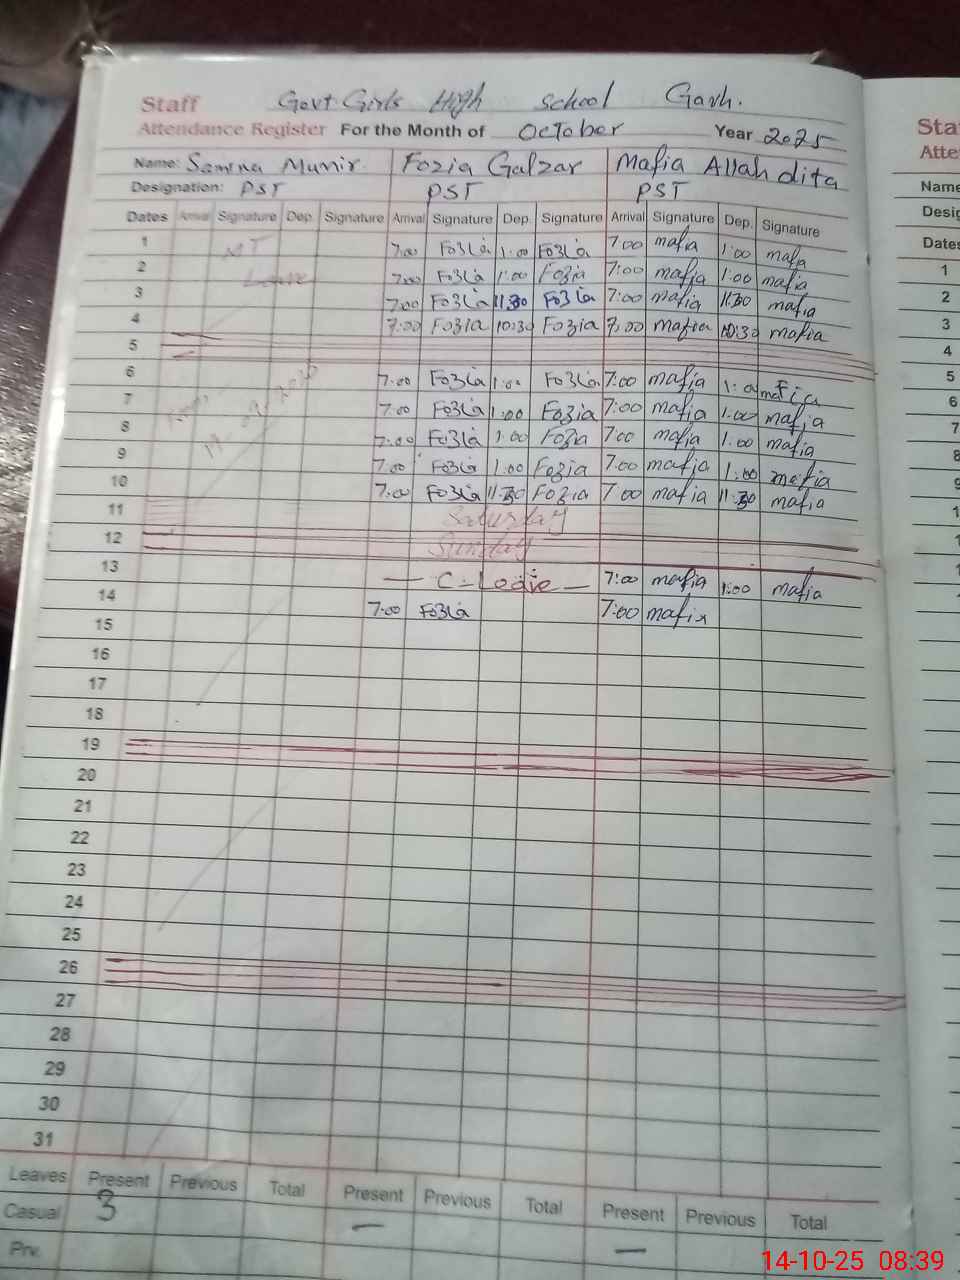 Staff Govt. Girls High School Garh.
Attendance Register For the Month of October Year 2025
Name: Samina Munir Fozia Galzar Mafia Allah dita
Designation: PST PST PST
Dates Arrival Signature Dep. Signature Arrival Signature Dep. Signature Arrival Signature Dep. Signature
1 7:00 Fozia 1:00 Fozia 7:00 mafia 1:00 mafia
2 Leave 7:00 Fozia 1:00 Fozia 7:00 mafia 1:00 mafia
3 7:00 Fozia 11:30 Fozia 7:00 mafia 11:30 mafia
4 7:00 Fozia 10:30 Fozia 7:00 mafia 10:30 mafia
5
6 7:00 Fozia 1:00 Fozia 7:00 mafia 1:00 mafia
7 7:00 Fozia 1:00 Fozia 7:00 mafia 1:00 mafia
8 7:00 Fozia 1:00 Fozia 7:00 mafia 1:00 mafia
9 7:00 Fozia 1:00 Fozia 7:00 mafia 1:00 mafia
10 7:00 Fozia 11:30 Fozia 7:00 mafia 11:30 mafia
11 Saturday
12 Sunday
13 — C-Leave — 7:00 mafia 1:00 mafia
14 7:00 Fozia 7:00 mafia
15
16
17
18
19
20
21
22
23
24
25
26
27
28
29
30
31
Leaves Present Previous Total Present Previous Total Present Previous Total
Casual 3 — —
Prv.
Name
Dates
1
2
3
4
5
6
7
8
9
14-10-25 08:39